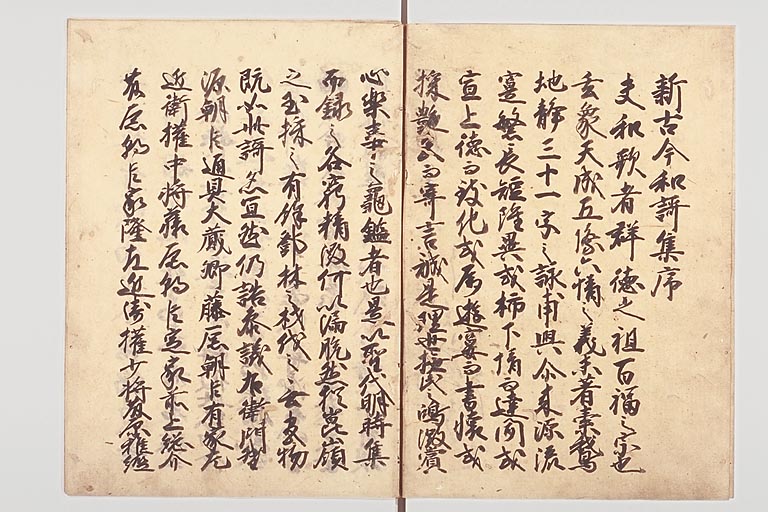 新古今和謌集序
夫和歌者群德之祖百福之宗也
玄象天成五際六情之義未著素鵞
地静三十一字之詠甫興尒来源流
寔繁長短雖異或抒下情而達聞或
宣上德而致化或属遊宴而書懐或
採艶色而寄言誠是理世撫民之鴻徽賞
心樂事之龜鑑者也是以聖代明時集
而録之各窮精微何以漏脱然猶崑嶺
之玉採之有餘鄧林之材伐之無盡物
既如此謌亦宜然仍詔参議右衛門督
源朝臣通具大蔵卿藤原朝臣有家左
近衛權中将藤原朝臣定家前上総介
藤原朝臣家隆左近衛權少将藤原雅経